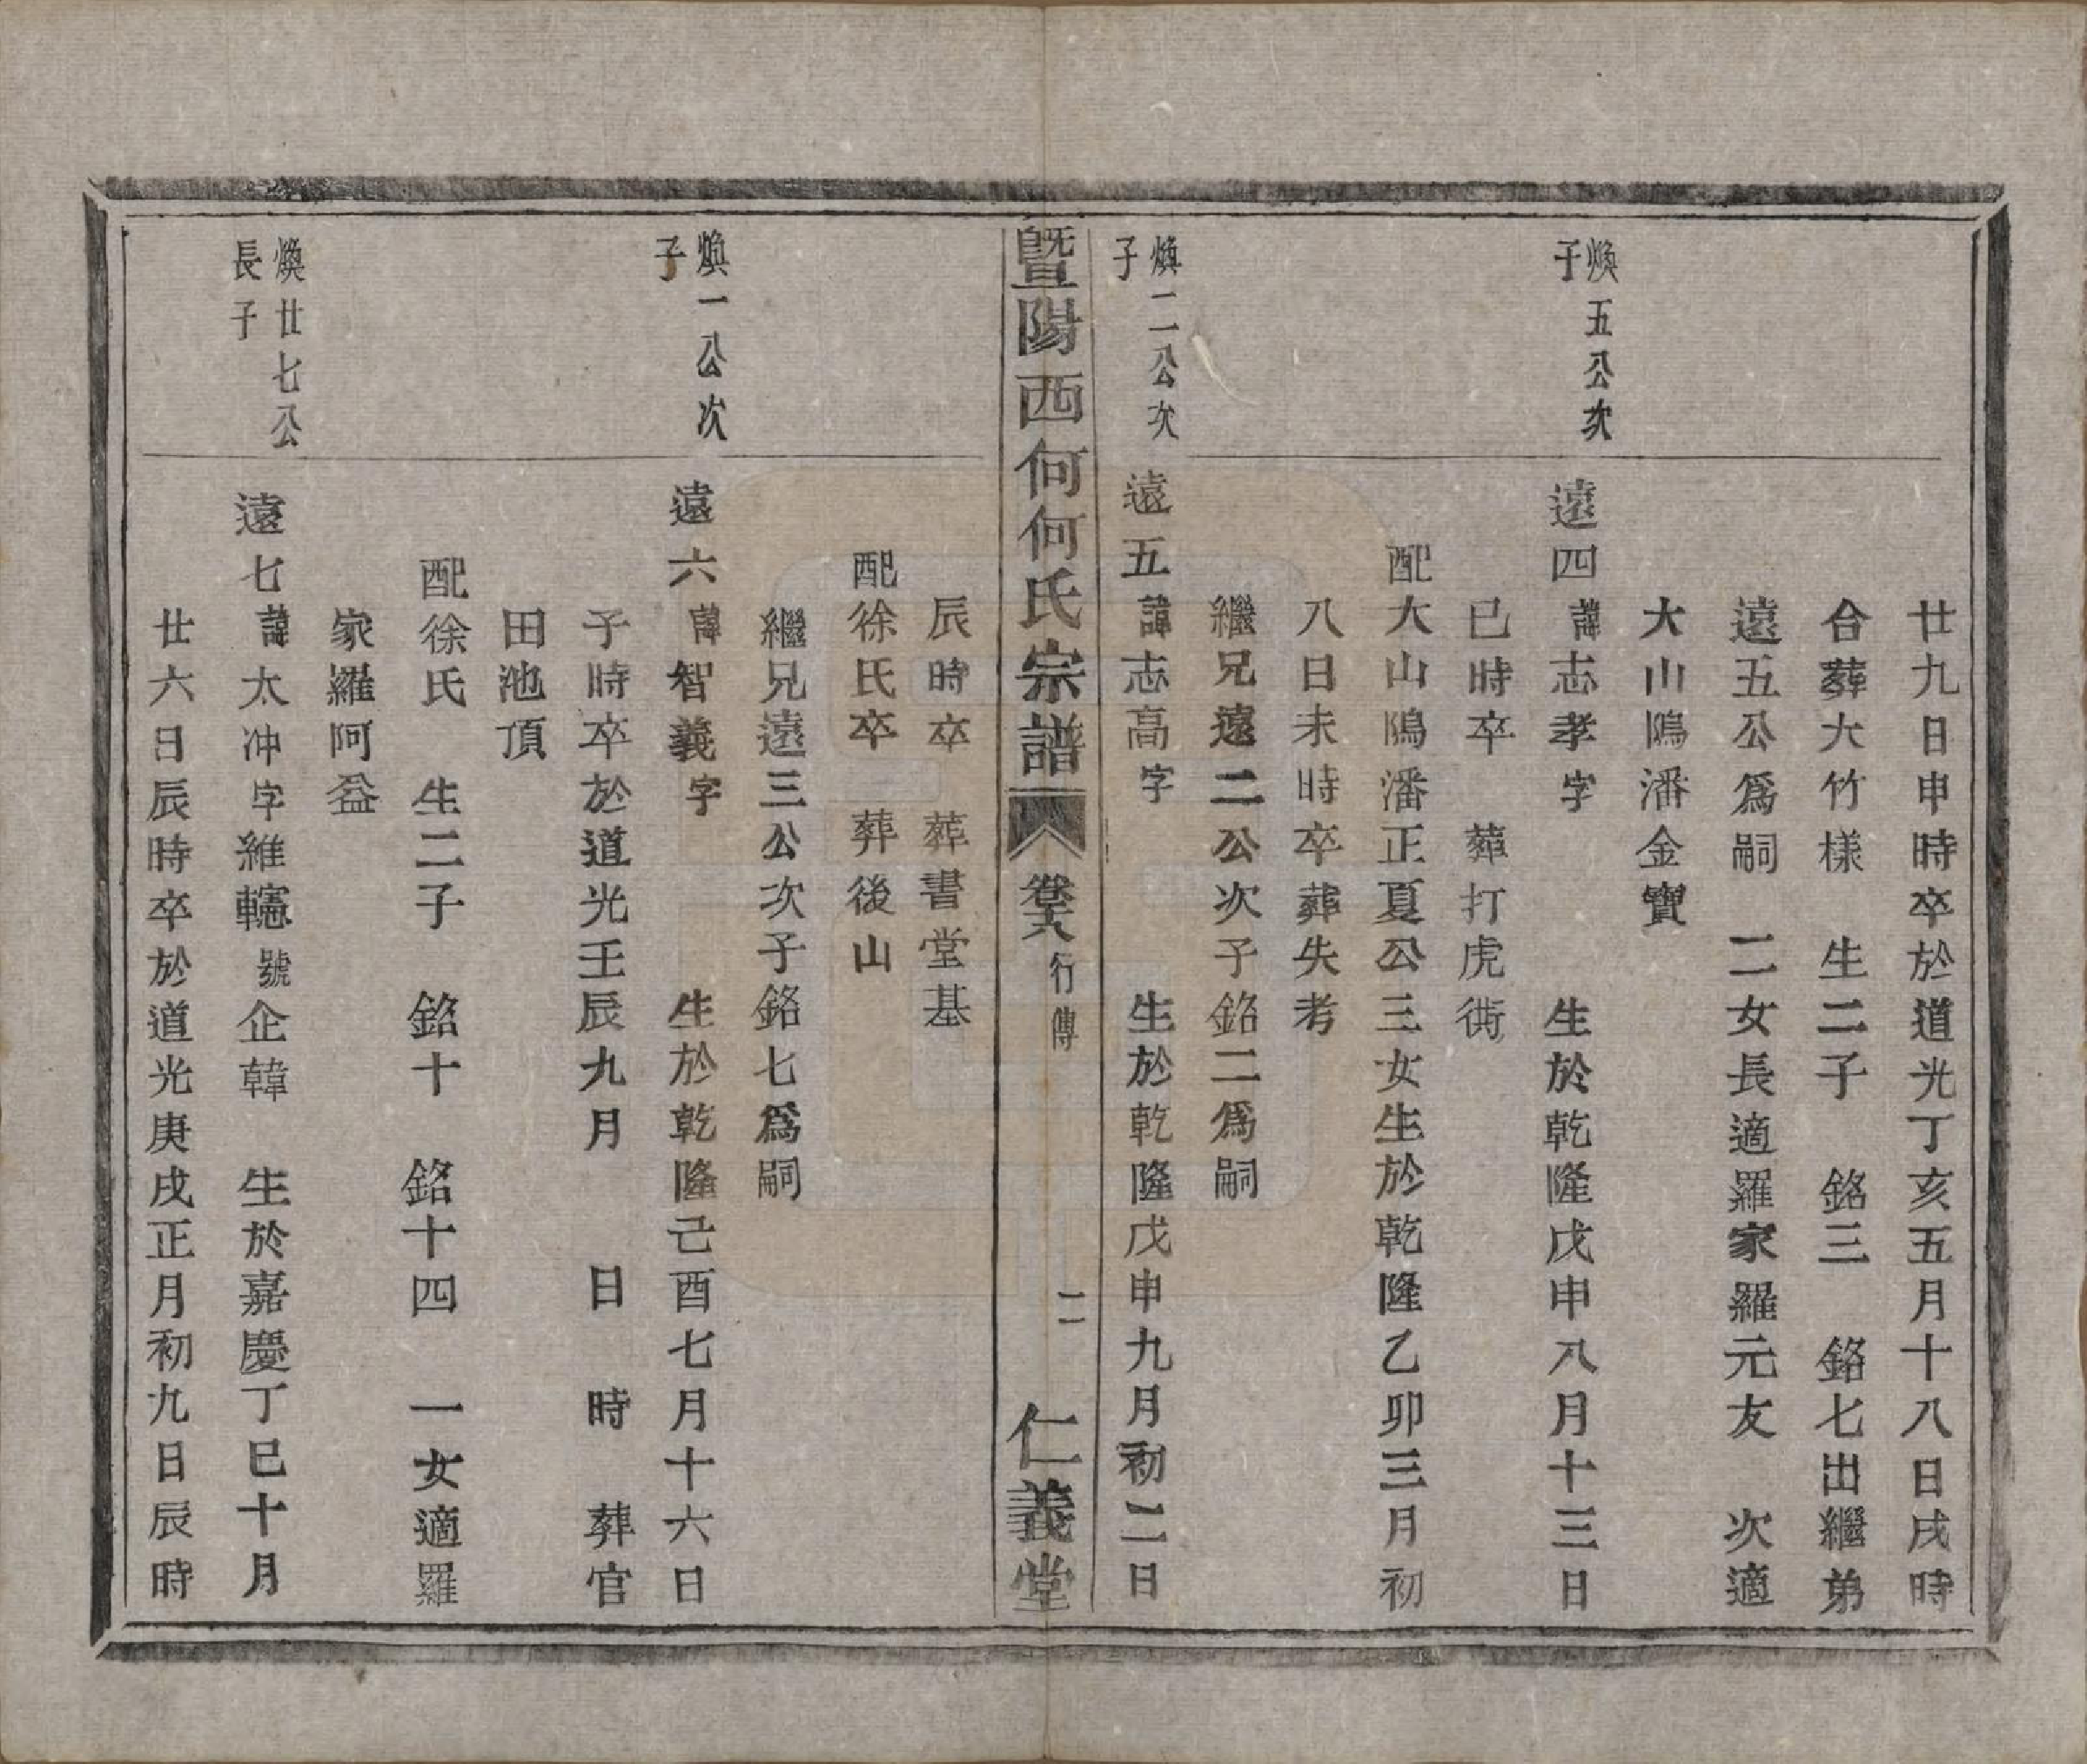 廿九日申時卒於道光丁亥五月十八日戌時
合葬大竹様　生二子　銘三　銘七出繼弟
遠五公爲嗣　二女長適羅家羅元友　次適
大山隖潘金寶
煥五公次子
遠四諱志孝字　生於乾隆戊申八月十三日
巳時卒　葬打虎衖
配大山隖潘正夏公三女生於乾隆乙卯三月初
八日未時卒葬失考
繼兄遠二公次子銘二爲嗣
煥二公次子
遠五諱志高字　生於乾隆戊申九月初二日
暨陽西何何氏宗譜　卷六　行傳　二　仁義堂
辰時卒　葬書堂基
配徐氏卒　葬後山
繼兄遠三公次子銘七爲嗣
煥一公次子
遠六諱智義字　生於乾隆己酉七月十六日
子時卒於道光壬辰九月　日　時　葬官
田池頂
配徐氏　生二子　銘十　銘十四　一女適羅
家羅阿益
煥廿七公長子
遠七諱太冲字維轤號企韓　生於嘉慶丁巳十月
廿六日辰時卒於道光庚戌正月初九日辰時